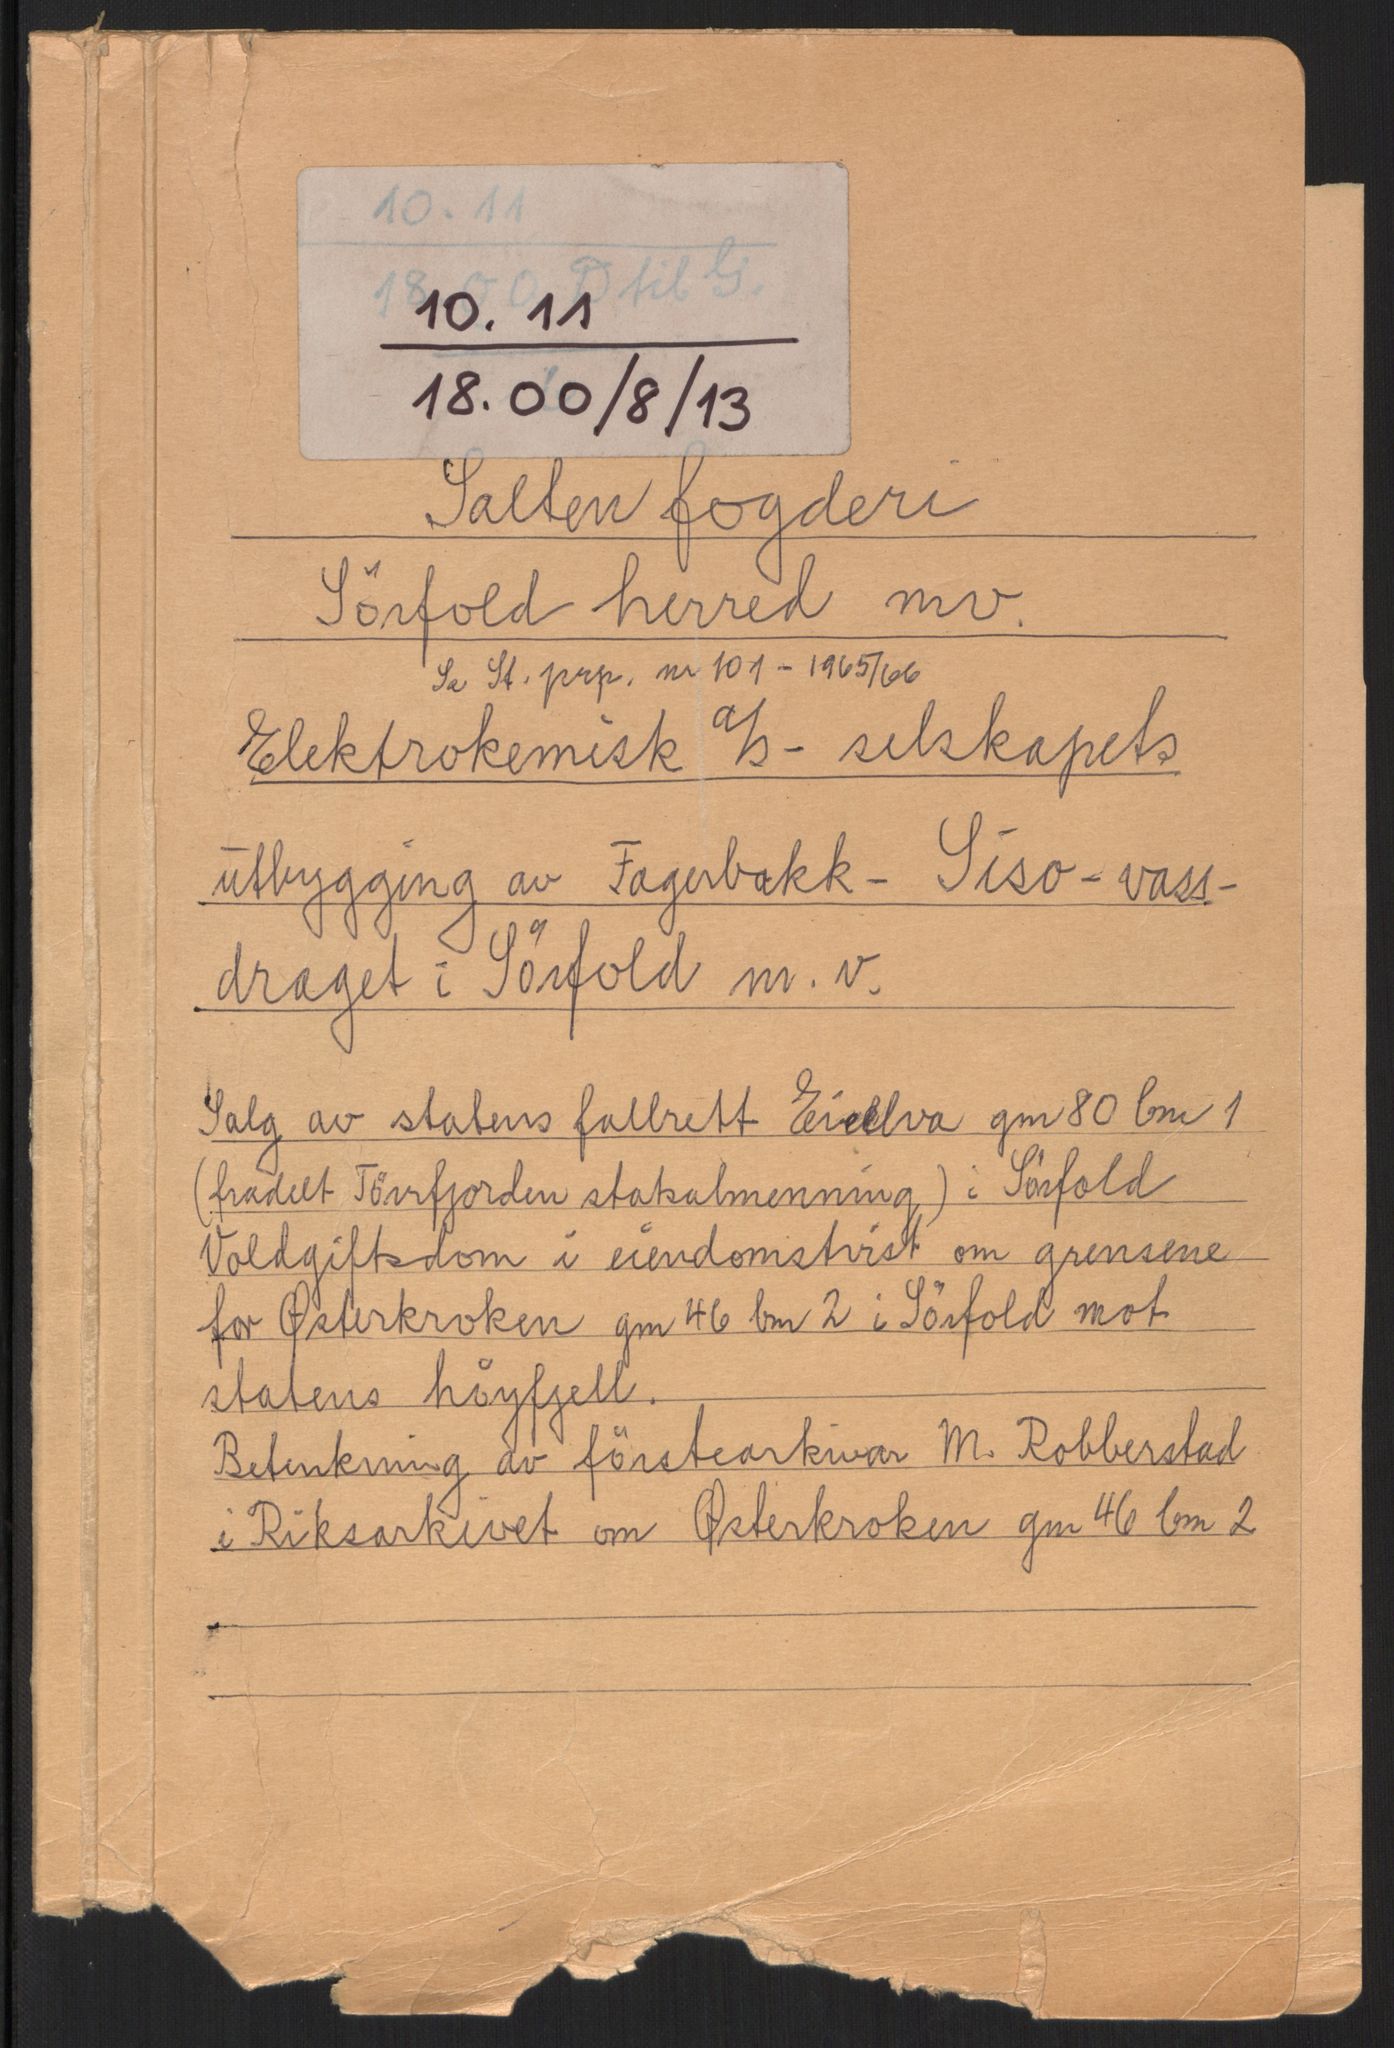 10. 11
18.00 D til G.
10. 11
18.00/8/13
Salten fogderi
Sörfold herred mv.
Se St. prp. nr 101 - 1965/66
Elektrokemisk a/s - selskapets
utbygging av Fagerbakk - Siso - vass-
draget i Sörfold m. v.
Salg av statens fallrett Eidelva gnr 80 bnr 1
(fradelt Törrfjorden statsalmenning) i Sörfold
Voldgiftsdom i eiendomstvist om grensene
for Østerkroken gnr 46 bnr 2 i Sörfold mot
statens höyfjell.
Betenkning av förstearkivar M. Robberstad
i Riksarkivet om Østerkroken gnr 46 bnr 2